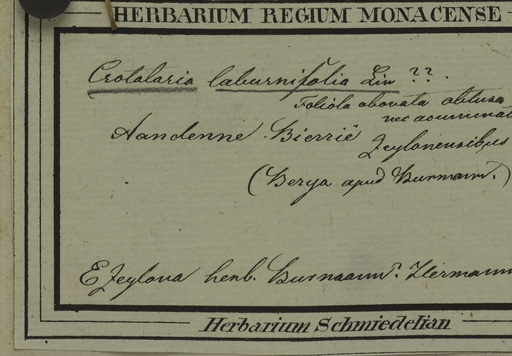 HERBARIUM REGIUM MONACENSE
Crotolaria laburnifolia Lin ??.
Foliola obovata obtusa
nec acuminat
Aandenne Bierrië Zeylonensibus
(Berya apud Burmann.)
E Zeylona herb. Burmann. Hermann
Herbarium Schmiedelian